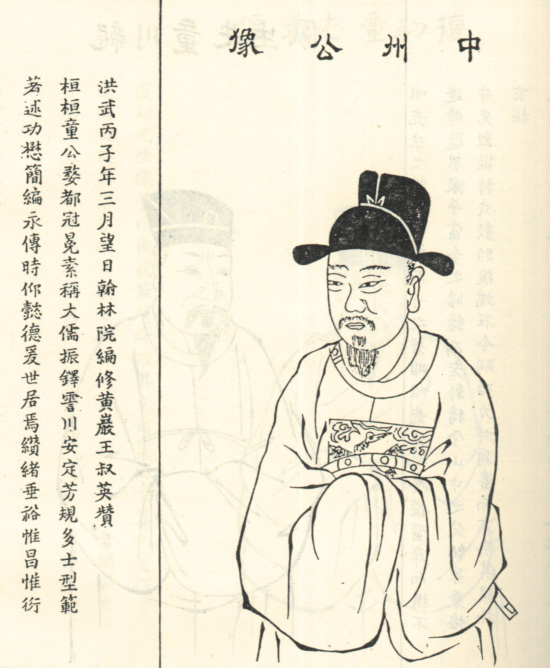 中州公像
洪武丙子年三月望日翰林院編修黃巖王叔英贊
桓桓童公婺都冠冕素稱大儒振鐸霅川安定芳規多士型範
著述功懋簡編永傳時仰懿德爰世居焉纘緒垂裕惟昌惟衍